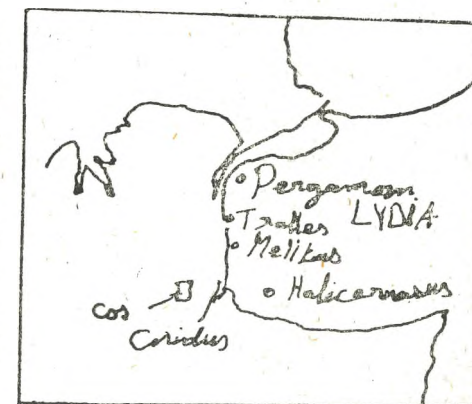 Pergamom
Tralles LYDIA
Melitus
Halicarnasus
Cos
Cnidus